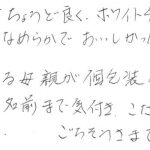 ちょうど良く、ホワイトチ
なめらかで おいしかっ
る母親が個包装
名前まで気付き、こだ
ごちそうさまで